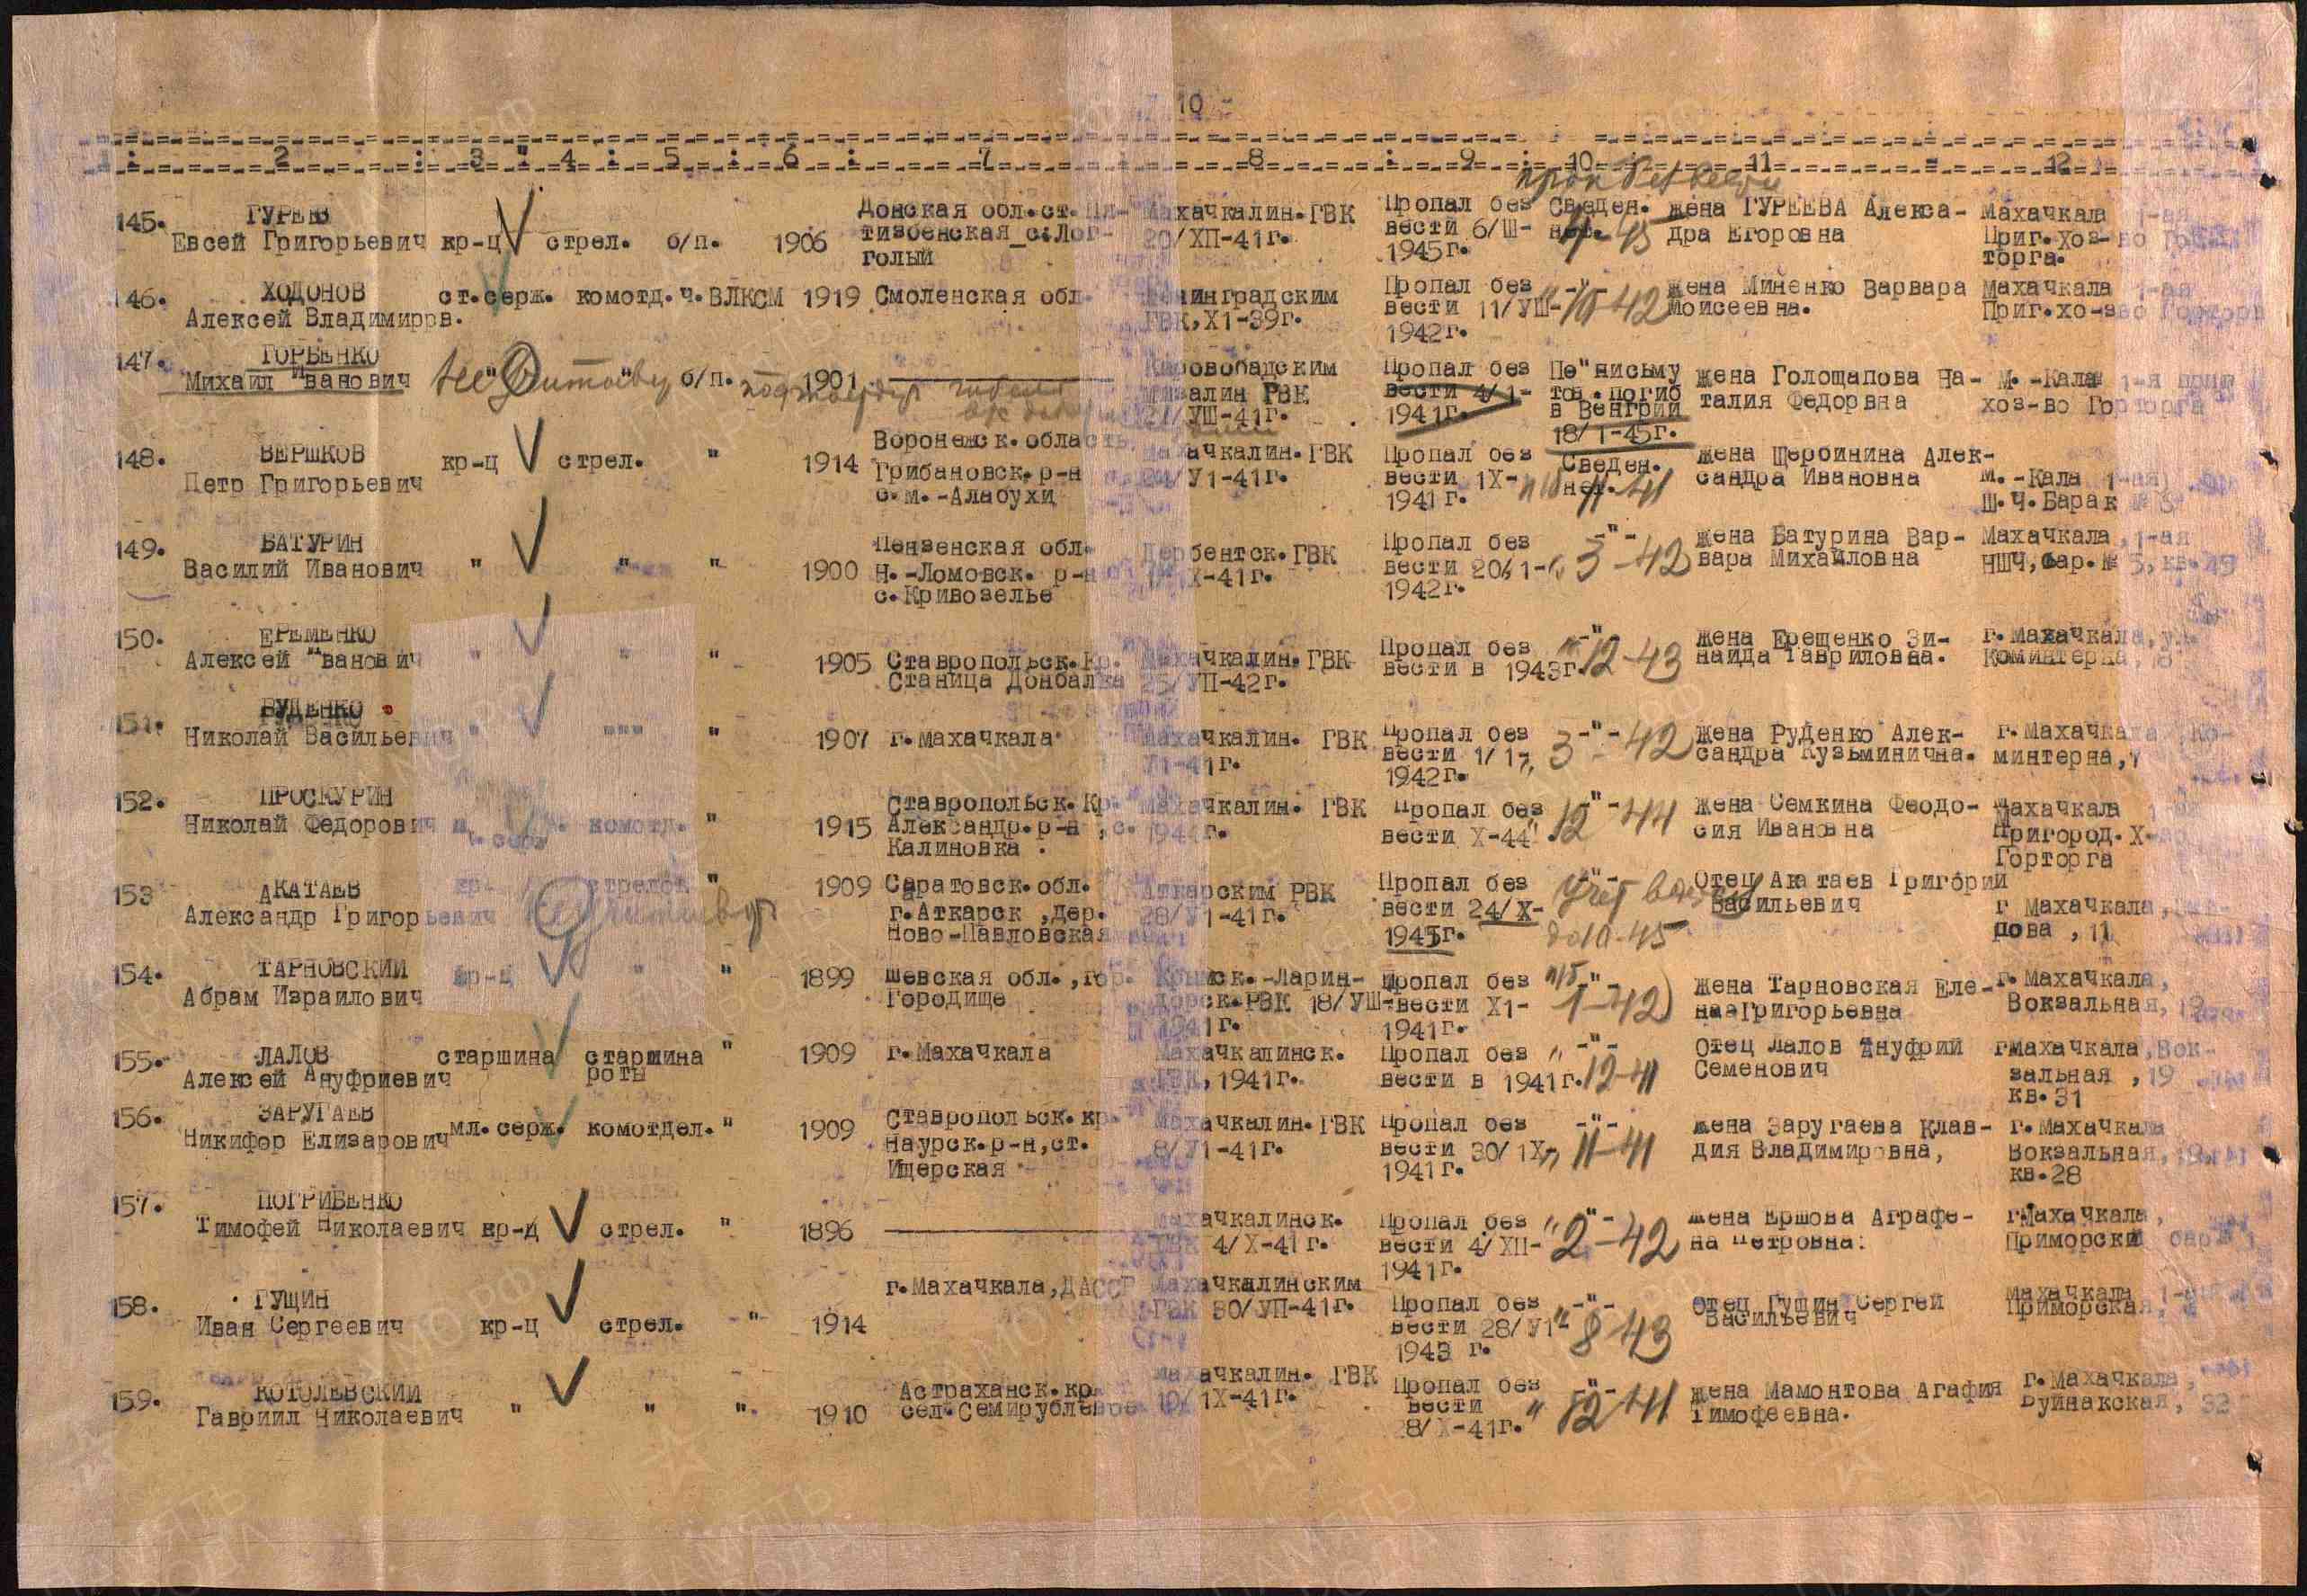 10 -
2 : 3 " 4 : 5 : 6 : 7 8 : 9 : 10 11 12
145. ГУРЕЕВ
Евсей Григорьевич кр-ц стрел. б/п. 1906
Донская обл.ст.
тизбенская с.Лог-
голый
Махачкалин.ГВК
20/ХП-41г.
Пропал без
вести 6/Ш-
1945г.
Сведен.
нет.
4-45
жена ГУРЕЕВА Алекса-
дра Егоровна
Махачкала 1-ая
Приг.хоз-во
торга.
146. ХОДОНОВ
Алексей Владимиров.
ст.серж. комотд. ч.ВЛКСМ 1919 Смоленская обл.
Ленинградским
ГВК,Х1-39г.
Пропал без
вести 11/УШ-
1942г.
-"-
10-42
жена Миненко Варвара
Моисеевна.
Махачкала 1-ая
Приг.хо-во Горторг
147. ГОРБЕНКО
Михаил Иванович
б/п. 1901
Кировобадским
РВК
21/УШ-41г.
Пропал без
вести 4/1-
1941г.
По письму
тов.погиб
в Венгрии
18/1-45г.
жена Голощапова На-
талия Федорвна
М.-Кала 1-я приг
хоз-во Горторга
148. ВЕРШКОВ
Петр Григорьевич
кр-ц стрел. " 1914
Воронежск.область
Грибановск.р-н
с.м.-Алабухи
Махачкалин.ГВК
24/У1-41г.
Пропал без
вести 1Х-
1941г.
Сведен.
нет.
11-41
жена Щербинина Алек-
сандра Ивановна
М.-Кала 1-ая
Ш.Ч.Барак № 3
149. БАТУРИН
Василий Иванович " " " 1900
Пензенская обл.
Н.-Ломовск. р-н
с.Кривозелье
Дербентск.ГВК
Х-41г.
Пропал без
вести 20/1-
1942г.
-"-
3-42
жена Батурина Вар-
вара Михайловна
Махачкала, 1-ая
НШЧ,бар.№ 5, кв.45
150. ЕРЕМЕНКО
Алексей Иванович " " " 1905
Ставропольск.Кр.
Станица Донбалка
Махачкалин.ГВК
25/УП-42г.
Пропал без
вести в 1943г.
-"-
12-43
жена Ерещенко Зи-
наида Гавриловна.
г.Махачкала, ул.
Коминтерна, 18
151. РУДЕНКО
Николай Васильевич " """ " 1907 г.Махачкала
Махачкалин. ГВК
У1-41г.
Пропал без
вести 1/1-
1942г.
-"-
3-42
жена Руденко Алек-
сандра Кузьминична.
г.Махачкала, Ко-
минтерна,
152. ПРОСКУРИН
Николай Федорович
серж комотд. " 1915
Ставропольск.Кр.
Александр.р-н , с.
Калиновка .
Махачкалин. ГВК
1944г.
Пропал без
вести Х-44
-"-
12-44
жена Семкина Феодо-
сия Ивановна
Махачкала
Пригород.Х-
Горторга
153 АКАТАЕВ
Александр Григорьевич
кр- стрелок " 1909
Саратовск.обл.
г.Аткарск ,дер.
Ново-Павловская
Аткарским РВК
28/У1-41г.
Пропал без
вести 24/Х-
1945г.
-"-
Отец Акатаев Григорий
Васильевич
г Махачкала,
рова , 11
154. ТАРНОВСКИЙ
Абрам Израилович
кр-ц " " 1899
шевская обл.,гор.
Городище
Крымск.-Ларин-
дорск.РВК 18/УШ-
1941г.
Пропал без
вести Х1-
1941г.
-"-
1-42
жена Тарновская Еле-
на Григорьевна
г.Махачкала,
Вокзальная, 19
155. ЛАЛОВ
Алексей Ануфриевич
старшина старшина "
роты
1909 г.Махачкала
Махачкалинск.
ГВК, 1941г.
Пропал без
вести в 1941г.
-"-
12-41
Отец Лалов Ануфрий
Семенович
гмахачкала,Вок-
зальная ,19
кв.31
156. ЗАРУГАЕВ
Никифор Елизарович
мл.серж. комотдел. " 1909
Ставропольск.кр.
Наурск.р-н,ст.
Ищерская
Махачкалин.ГВК
8/У1-41г.
Пропал без
вести 30/1Х
1941г.
-"-
11-41
жена Заругаева Клав-
дия Владимировна,
г.Махачкала
Вокзальная, 19,
кв.28
157. ПОГРИБЕНКО
Тимофей Николаевич кр-ц стрел. " 1896
Махачкалинск.
ГВК 4/Х-41г.
Пропал без
вести 4/ХП-
1941г.
-"-
2-42
жена Ершова Аграфе-
на Петровна.
гМахачкала,
Приморский бар
158. ГУЩИН
Иван Сергеевич кр-ц стрел. " 1914
г.Махачкала,ДАССР
Махачкалинским
ГВК 30/УП-41г.
Пропал без
вести 28/У1-
1943 г.
-"-
8-43
отец Гущин Сергей
Васильевич
Махачкала 1-
Приморская,
159. КОТОЛЕВСКИЙ
Гавриил Николаевич " " " 1910
Астраханск.кр
сел.Семирублевое
Махачкалин. ГВК
10/1Х-41г.
Пропал без
вести
8/Х-41г.
-"-
12-41
жена Мамонтова Агафия
Тимофеевна.
г.Махачкала,
Буйнакская, 32